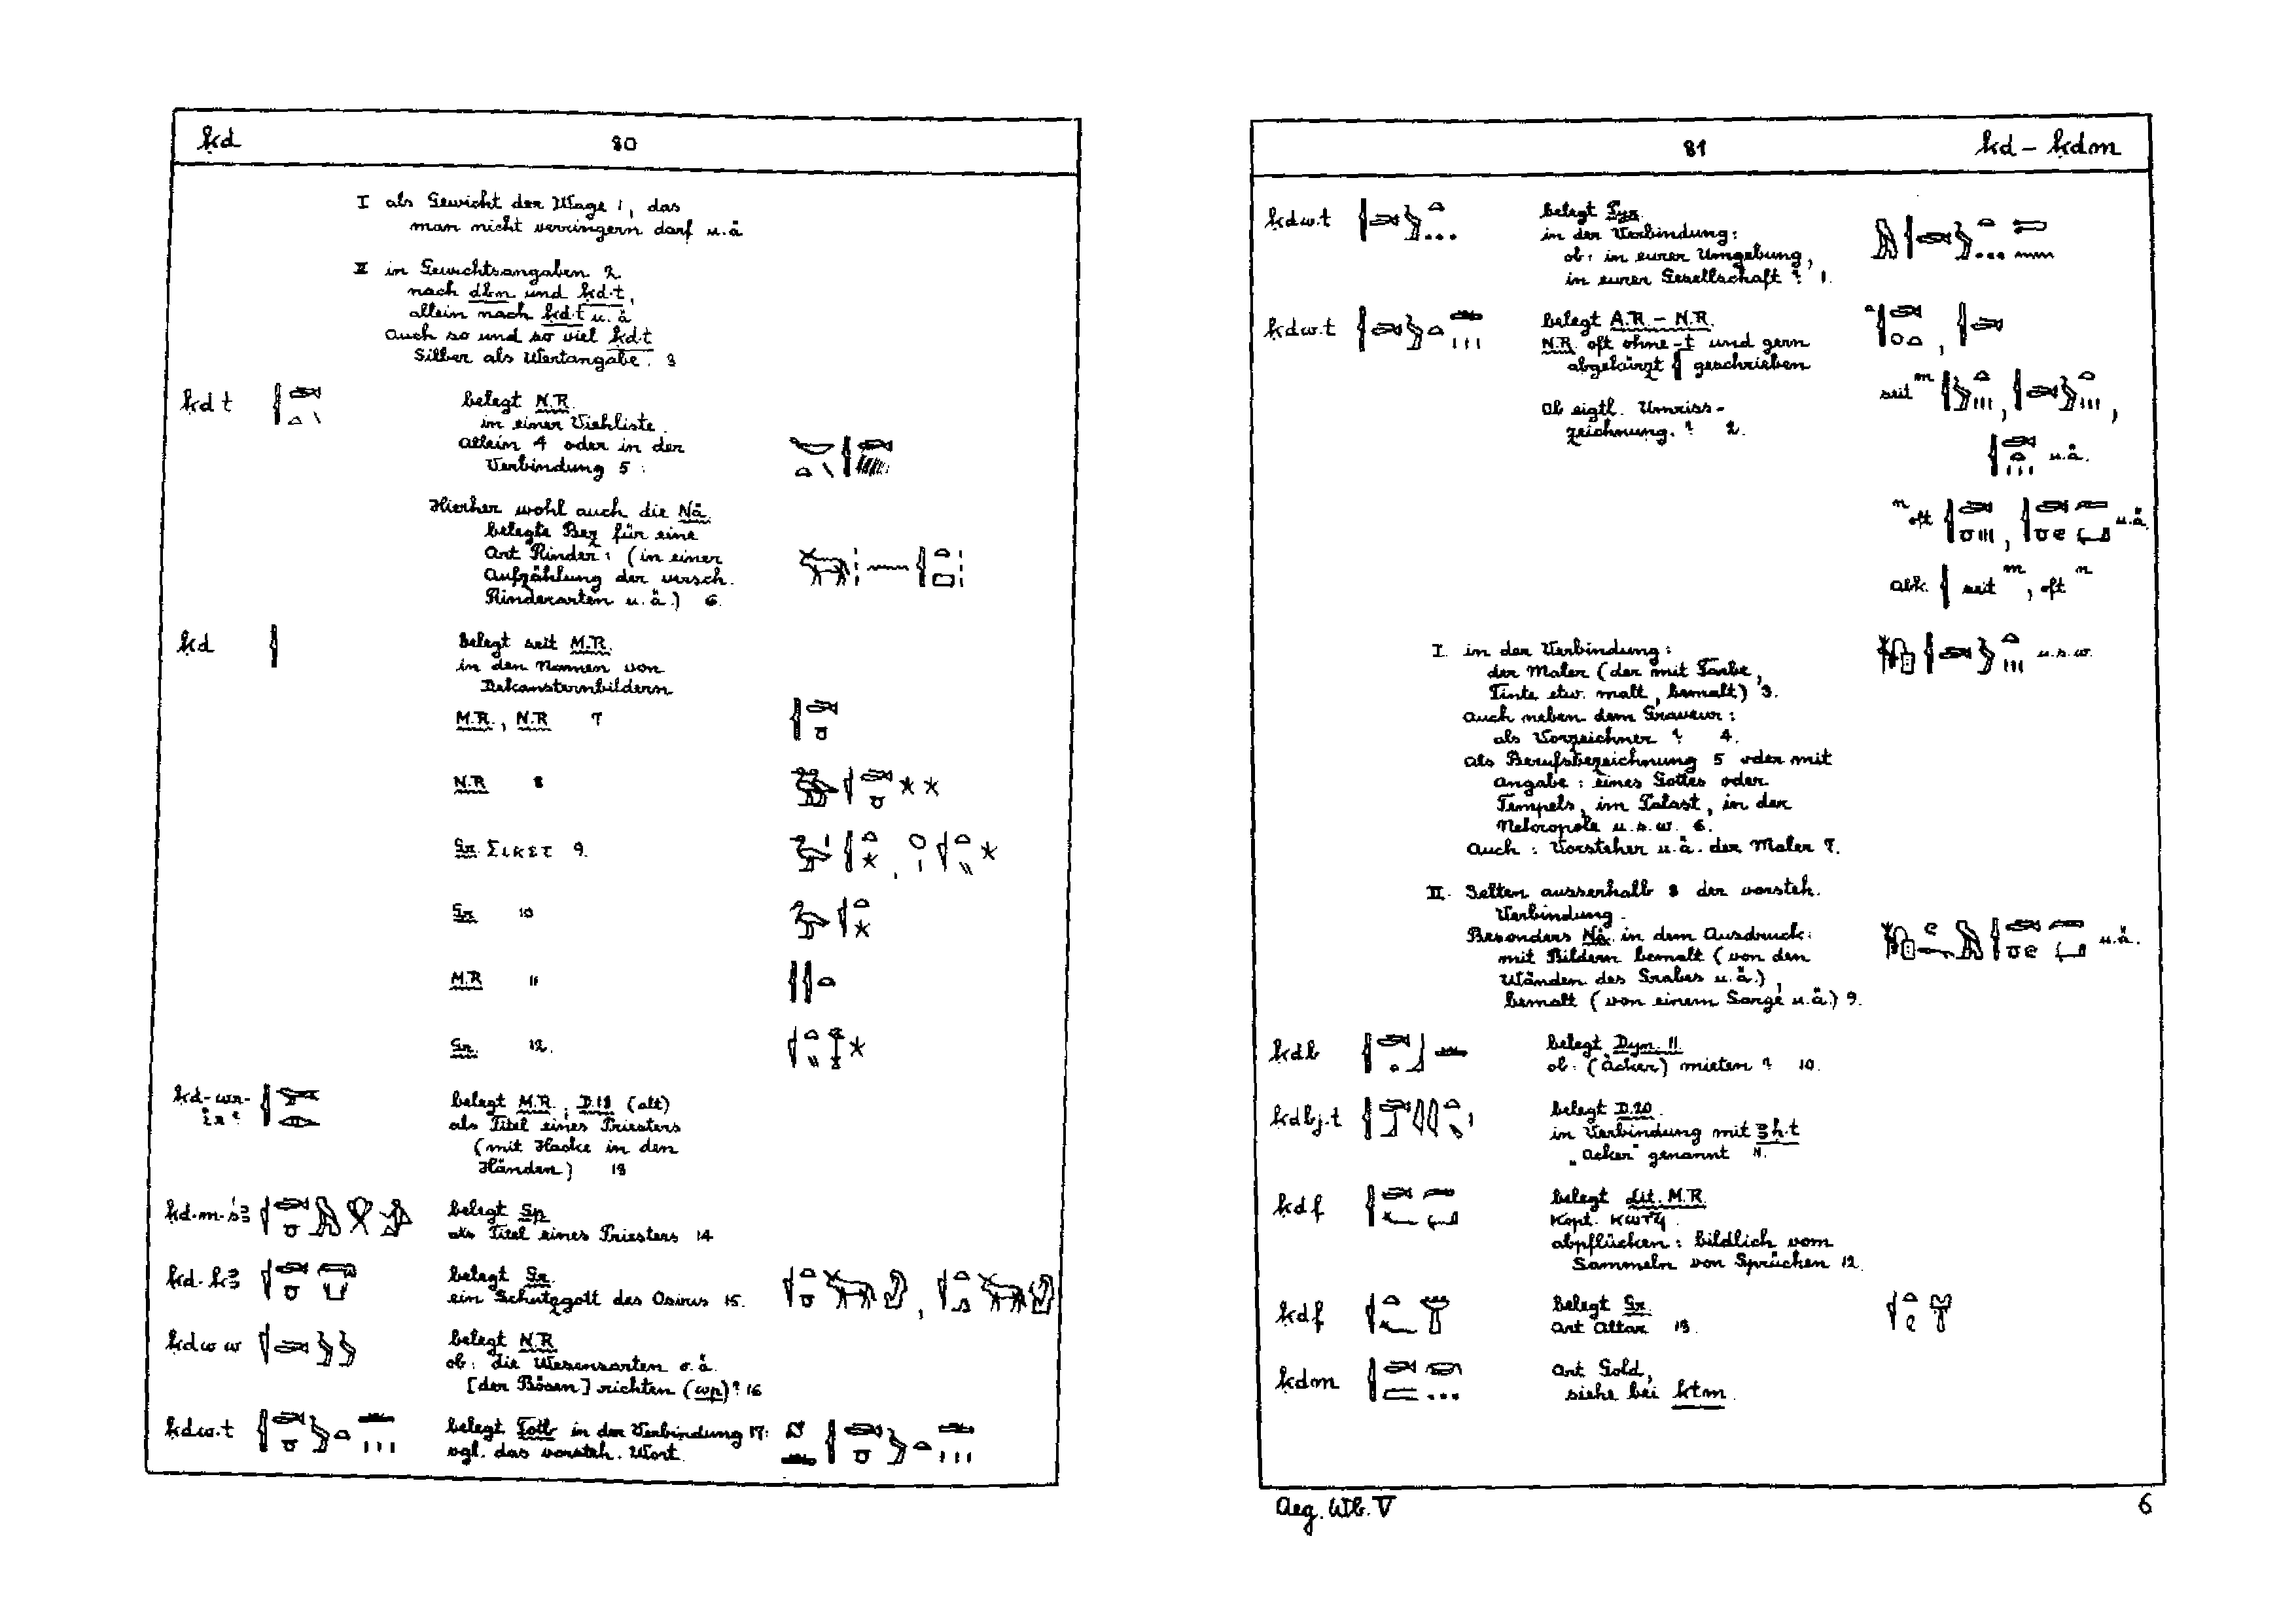 ḳd 80
I als Gewicht der Wage 1, das
man nicht verringern darf u.ä
II in Gewichtsangaben 2
nach dbn und ḳd.t,
allein nach ḳd.t u.ä
Auch so und so viel ḳd.t
Silber als Wertangabe. 3
ḳd t belegt N.R.
in einer Viehliste
allein 4 oder in der
Verbindung 5:
Hierher wohl auch die Nä.
belegte Bez für eine
Art Rinder: (in einer
Aufzählung der versch.
Rinderarten u.ä.) 6.
ḳd belegt seit M.R.
in den Namen von
Dekansternbildern
M.R., N.R 7
N.R 8
Gr. Σικετ 9.
Gr 10
M.R 11
Gr. 12.
ḳd-wr-
ir? belegt M.R., D.18 (alt)
als Titel eines Priesters
(mit Hacke in den
Händen) 13
ḳd-m-šꜣ belegt Sp
als Titel eines Priesters 14
ḳd-kꜣ belegt Gr.
ein Schutzgott des Osiris 15.
ḳdw w belegt N.R
ob: die Wesensarten o.ä.
[der Bösen] richten (wp)? 16
ḳdw.t belegt Totb in der Verbindung 17:
vgl. das vorsteh. Wort
81 ḳd – ḳdm
ḳdw.t belegt Pyr.
in der Verbindung:
ob: in eurer Umgebung,
in eurer Gesellschaft? 1.
ḳdw.t belegt A.R. – N.R.
N.R. oft ohne -t und gern
abgekürzt geschrieben
seit m
ob eigtl. Umriss-
zeichnung.? 2.
u.ä.
n oft u.ä.
Abk. seit m, oft n
I. in der Verbindung: u.s.w.
der Maler (der mit Farbe,
Tinte etw. malt, bemalt) 3.
Auch neben dem Graveur:
als Vorzeichner? 4.
als Berufsbezeichnung 5 oder mit
Angabe: eines Gottes oder
Tempels, im Palast, in der
Nekropole u.s.w. 6.
Auch: Vorsteher u.ä. der Maler 7.
II. Selten ausserhalb 8 der vorsteh.
Verbindung.
Besonders Nä. in dem Ausdruck: u.ä.
mit Bildern bemalt (von den
Wänden des Grabes u.ä.),
bemalt (von einem Sarge u.ä.) 9.
ḳdb belegt Dyn. 11.
ob: (Äcker) mieten? 10.
ḳdbj.t belegt D.20.
in Verbindung mit ꜣḥ.t
„Acker" genannt 11.
ḳdf belegt Lit. M.R.
Kopt. ⲕⲱⲧϥ.
abpflücken: bildlich vom
Sammeln von Sprüchen 12.
ḳdf belegt Gr.
Art Altar 13.
ḳdm Art Gold,
siehe bei ktm.
Aeg. Wb. V 6